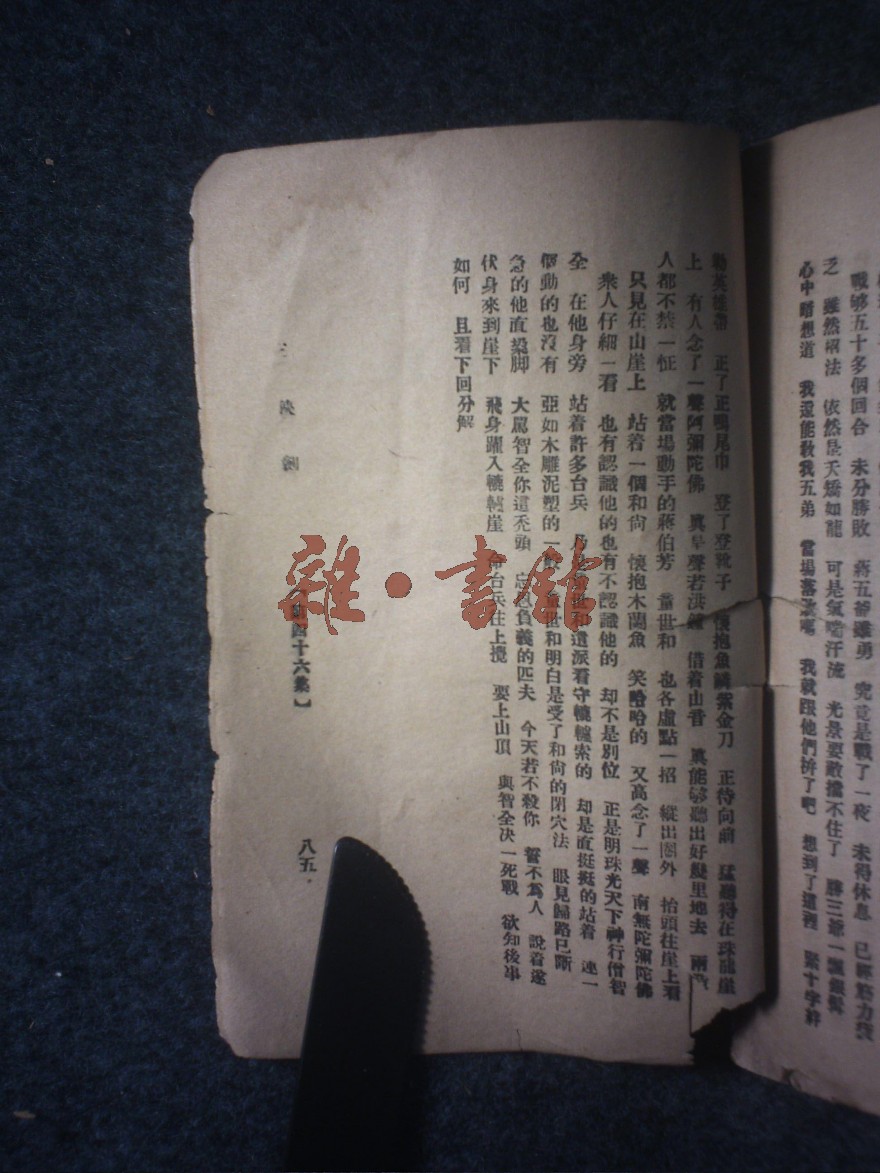 戰够五十多個回合　未分勝敗　蔣五爺雖勇　究竟是戰了一夜　未得休息　已經筋力疲
乏　雖然兩法　依然是夭矯如龍　可是氣喘汗流　光景要敵擋不住了　勝三爺一飄銀髯
心中暗想道　我還能敎我五弟　當場落敗嗎　我就跟他們拚了吧　想到了這裡　緊十字絆
勒英雄帶　正了正鴨尾巾　登了登靴子　懷抱魚鱗紫金刀　正待向前　猛聽得在珠龍崖
上　有人念了一聲阿彌陀佛　眞是聲若洪鐘　借着山音　眞能够聽出好幾里地去　兩
人都不禁一怔　就當場動手的蔣伯芳　童世和　也各虛點一招　縱出圈外　抬頭往崖上看
只見在山崖上　站着一個和尙　懷抱木閫魚　笑哈哈的　又高念了一聲　南無陀彌陀佛
衆人仔細一看　也有認識他的也有不認識他的　却不是別位　正是明珠光天下神行僧智
全　在他身旁　站着許多台兵　世和這派看守轆轤索的　却是直挺挺的站着　連一
個動的也沒有　亞如木雕泥塑的一般　童世和明白是受了和尙的閉穴法　眼見歸路已斷
急的他直跺脚　大罵智全你這禿頭　忘恩負義的匹夫　今天若不殺你　誓不爲人　說着遂
伏身來到崖下　飛身躍入轆轤崖　命台兵往上攪　要上山頂　與智全决一死戰　欲知後事
如何　且看下回分解
三俠劍
四十六集】
八五
雜·書館